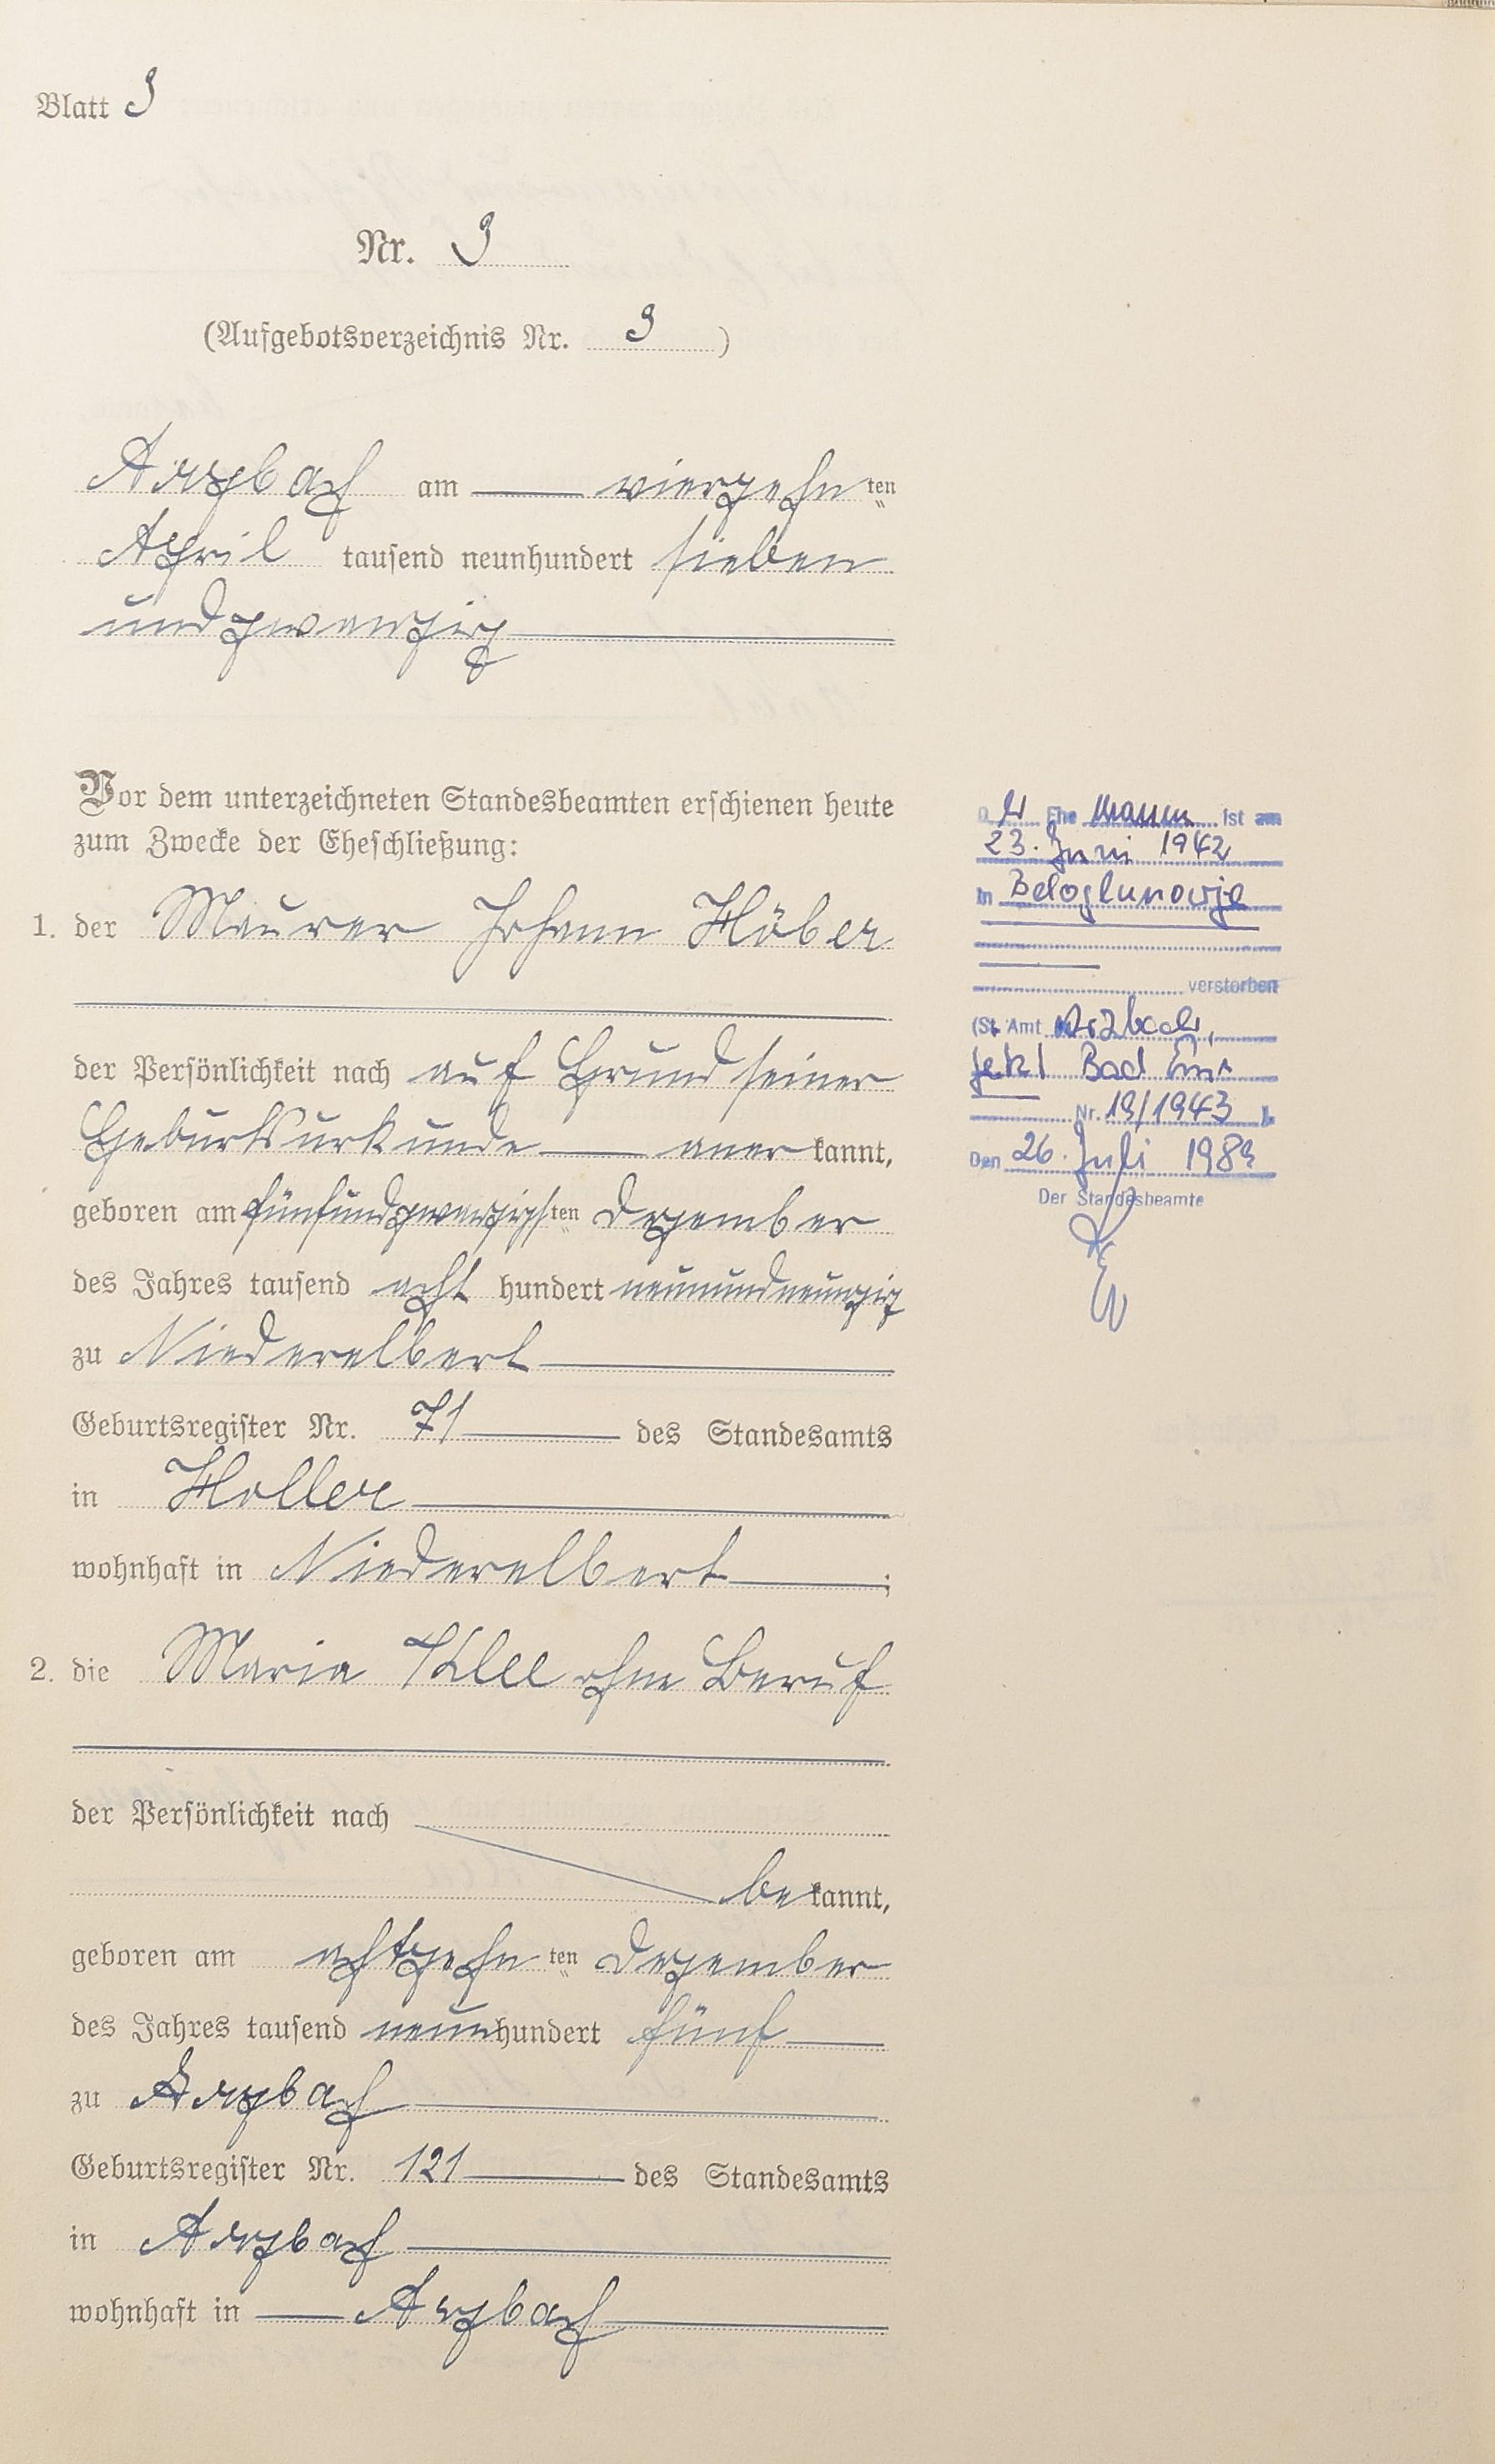 Blatt 3
Nr. 3
(Aufgebotsverzeichnis Nr. 3)
Arzbach am vierzehnten
April tausend neunhundert sieben
undzwanzig
Vor dem unterzeichneten Standesbeamten erschienen heute
zum Zwecke der Eheschließung:
1. der Maurer Johann Höber
der Persönlichkeit nach auf Grund seiner
Geburtsurkunde anerkannt,
geboren am fünfundzwanzigsten Dezember
des Jahres tausend acht hundert neunundneunzig
zu Niederelbert
Geburtsregister Nr. 71 des Standesamts
in Holler
wohnhaft in Niederelbert;
2. die Maria Klee ohne Beruf
der Persönlichkeit nach
bekannt,
geboren am achtzehnten Dezember
des Jahres tausend neunhundert fünf
zu Arzbach
Geburtsregister Nr. 121 des Standesamts
in Arzbach
wohnhaft in Arzbach
Der Ehemann ist am
23. Juni 1942
in Beloglunowje
verstorben
(St. Amt Arzbach,
jetzt Bad Ems
Nr. 19/1943
Den 26. Juli 1989
Der Standesbeamte